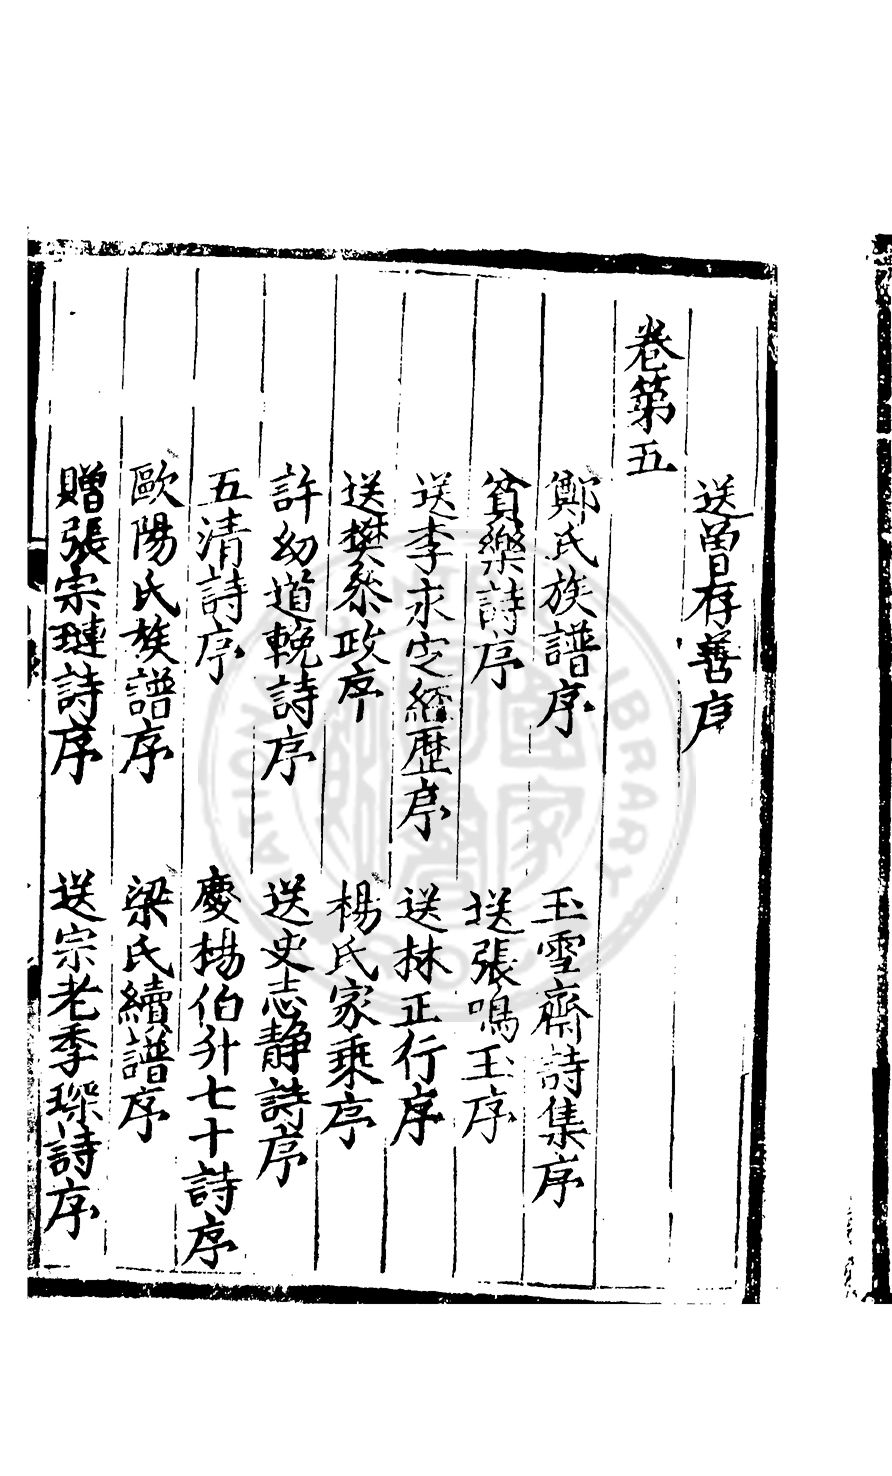 送曾存善序
卷第五
鄭氏族譜序
玉雪齋詩集序
貧樂詩序
送張鳴玉序
送李永定經歷序
送林正行序
送樊叅政序
楊氏家乘序
許幼道輓詩序
送史志靜詩序
五清詩序
慶楊伯升七十詩序
歐陽氏族譜序
梁氏續譜序
贈張宗璉詩序
送宗老季琛詩序